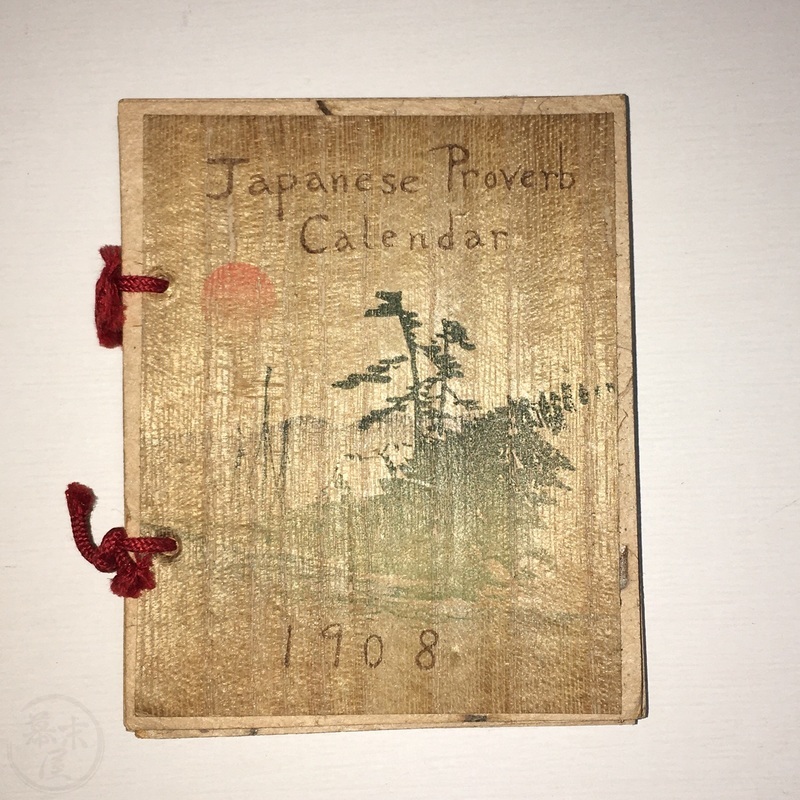 Japanese Proverb
Calendar
1908
幕末屋